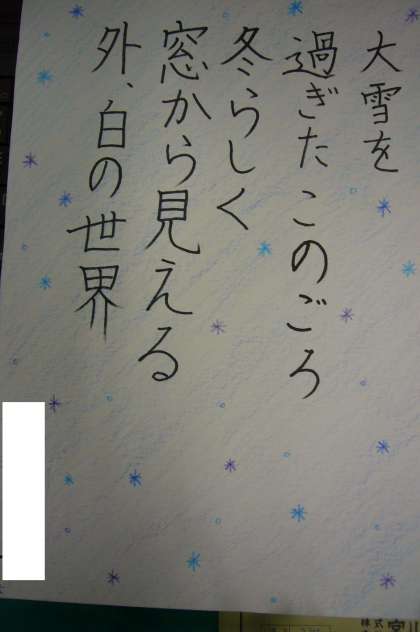 大雪を
過ぎたこのごろ
冬らしく
窓から見える
外、白の世界
株式